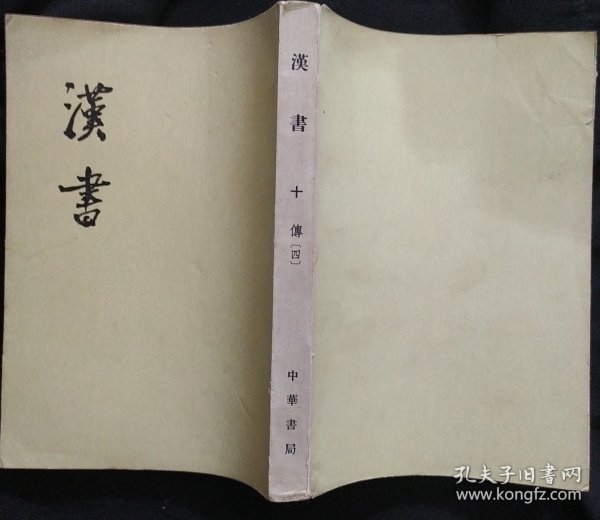 漢書
漢書 十 傳〔四〕 中華書局
孔夫子旧書网
www.kongfz.com